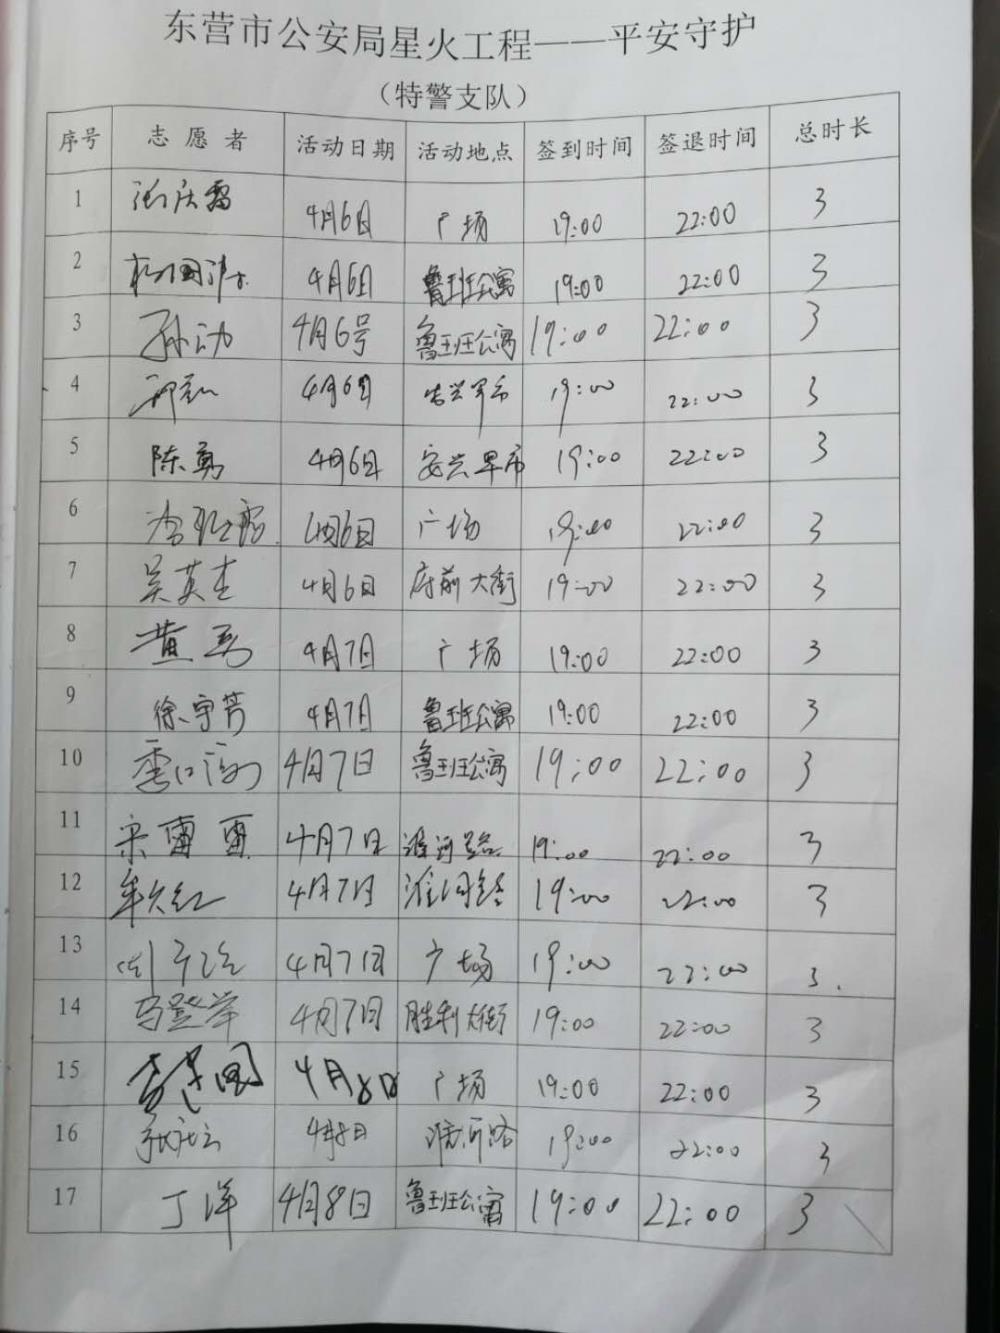 东营市公安局星火工程——平安守护
（特警支队）
序号 志愿者 活动日期 活动地点 签到时间 签退时间 总时长
1 4月6日 广场 19:00 22:00 3
2 4月6日 鲁班公寓 19:00 22:00 3
3 孙动 4月6号 鲁班公寓 19:00 22:00 3
4 4月6日 19:00 22:00 3
5 陈勇 4月6日 安兴早市 19:00 22:00 3
6 4月6日 广场 19:00 22:00 3
7 吴英杰 4月6日 府前大街 19:00 22:00 3
8 4月7日 广场 19:00 22:00 3
9 徐宁芳 4月7日 鲁班公寓 19:00 22:00 3
10 4月7日 鲁班公寓 19:00 22:00 3
11 宋雷雷 4月7日 19:00 22:00 3
12 4月7日 19:00 22:00 3
13 4月7日 广场 19:00 22:00 3.
14 马登举 4月7日 胜利大街 19:00 22:00 3
15 4月8日 广场 19:00 22:00 3
16 4月8日 19:00 22:00 3
17 丁洋 4月8日 鲁班公寓 19:00 22:00 3